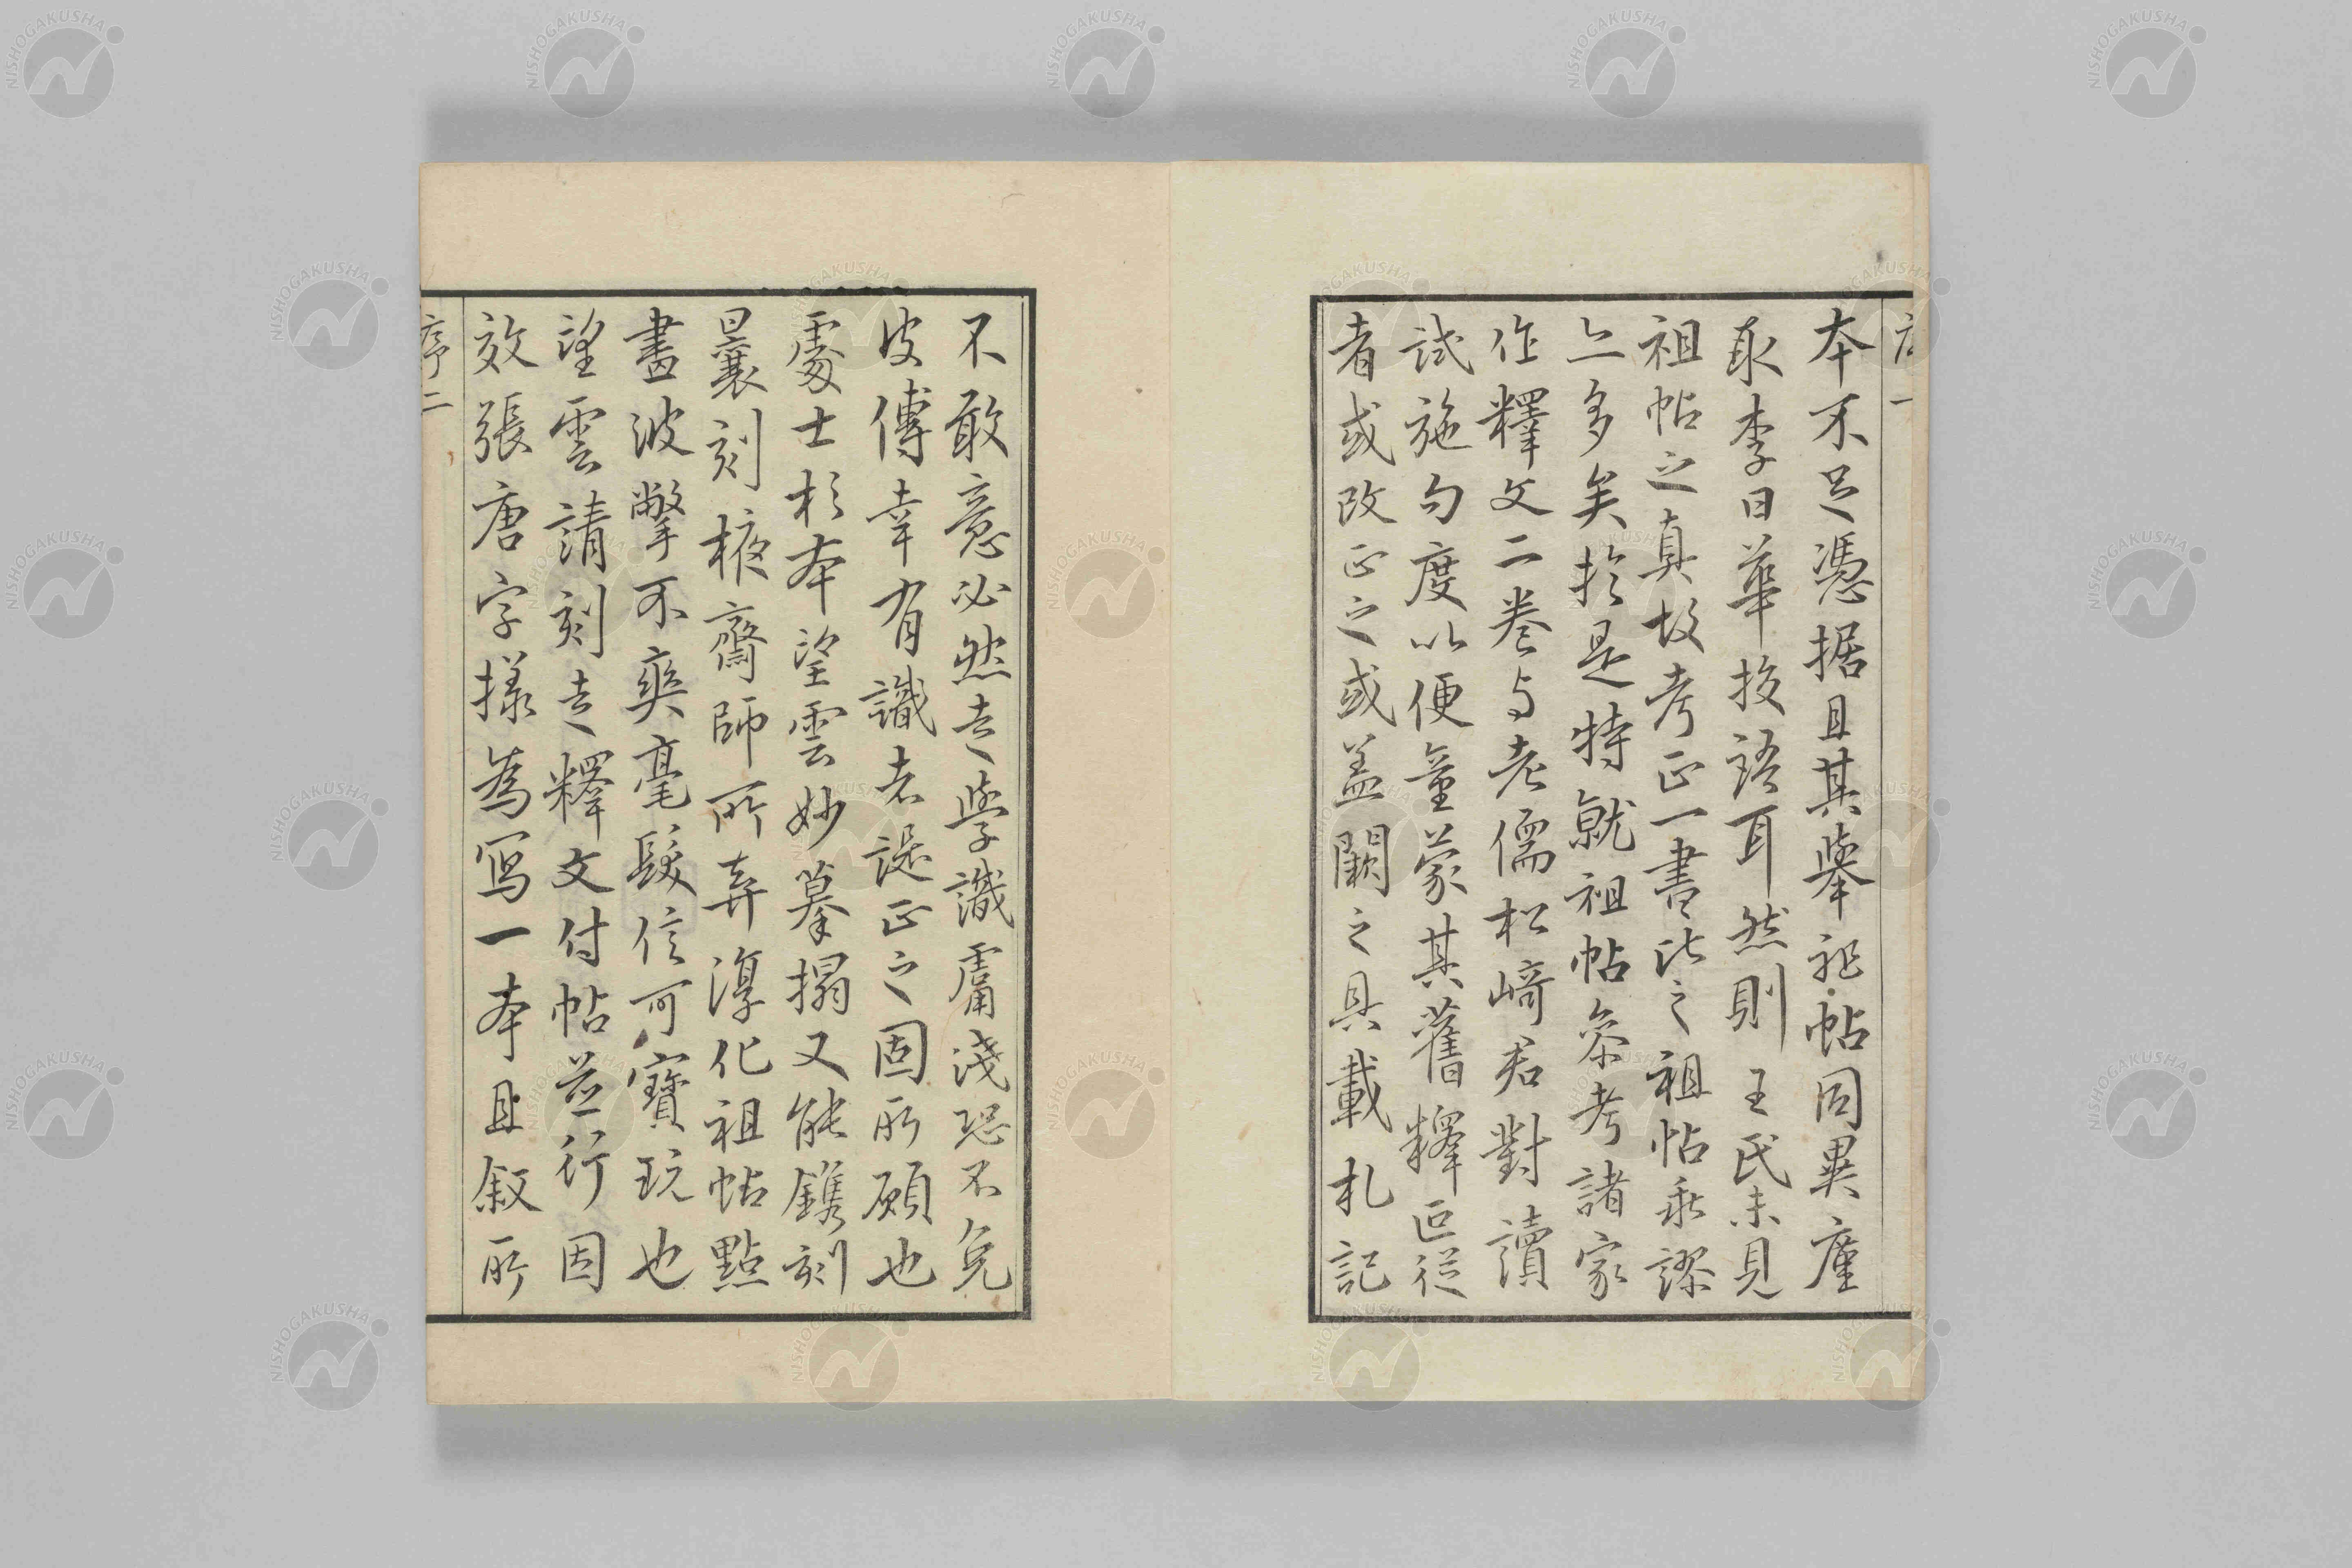 本不足憑据且其擧祖帖同異廑
取李日華按語耳然則王氏未見
祖帖之真故考正一書比之祖帖乖謬
亦多矣於是特就祖帖参考諸家
作釋文二卷与老儒松﨑君對讀
試施句度以便童蒙其舊釋叵従
者或改正之或盖闕之具載札記
不敢意必然走學識庸淺恐不免
皮傅幸有識者諟正之固所願也
處士杉本望雲妙摹搨又能鐫刻
曩刻棭齋師所弆淳化祖帖點
畫波撆不爽毫髮信可寶玩也
望雲請刻走釋文付帖並行因
效張唐字様為寫一本且叙所
序二